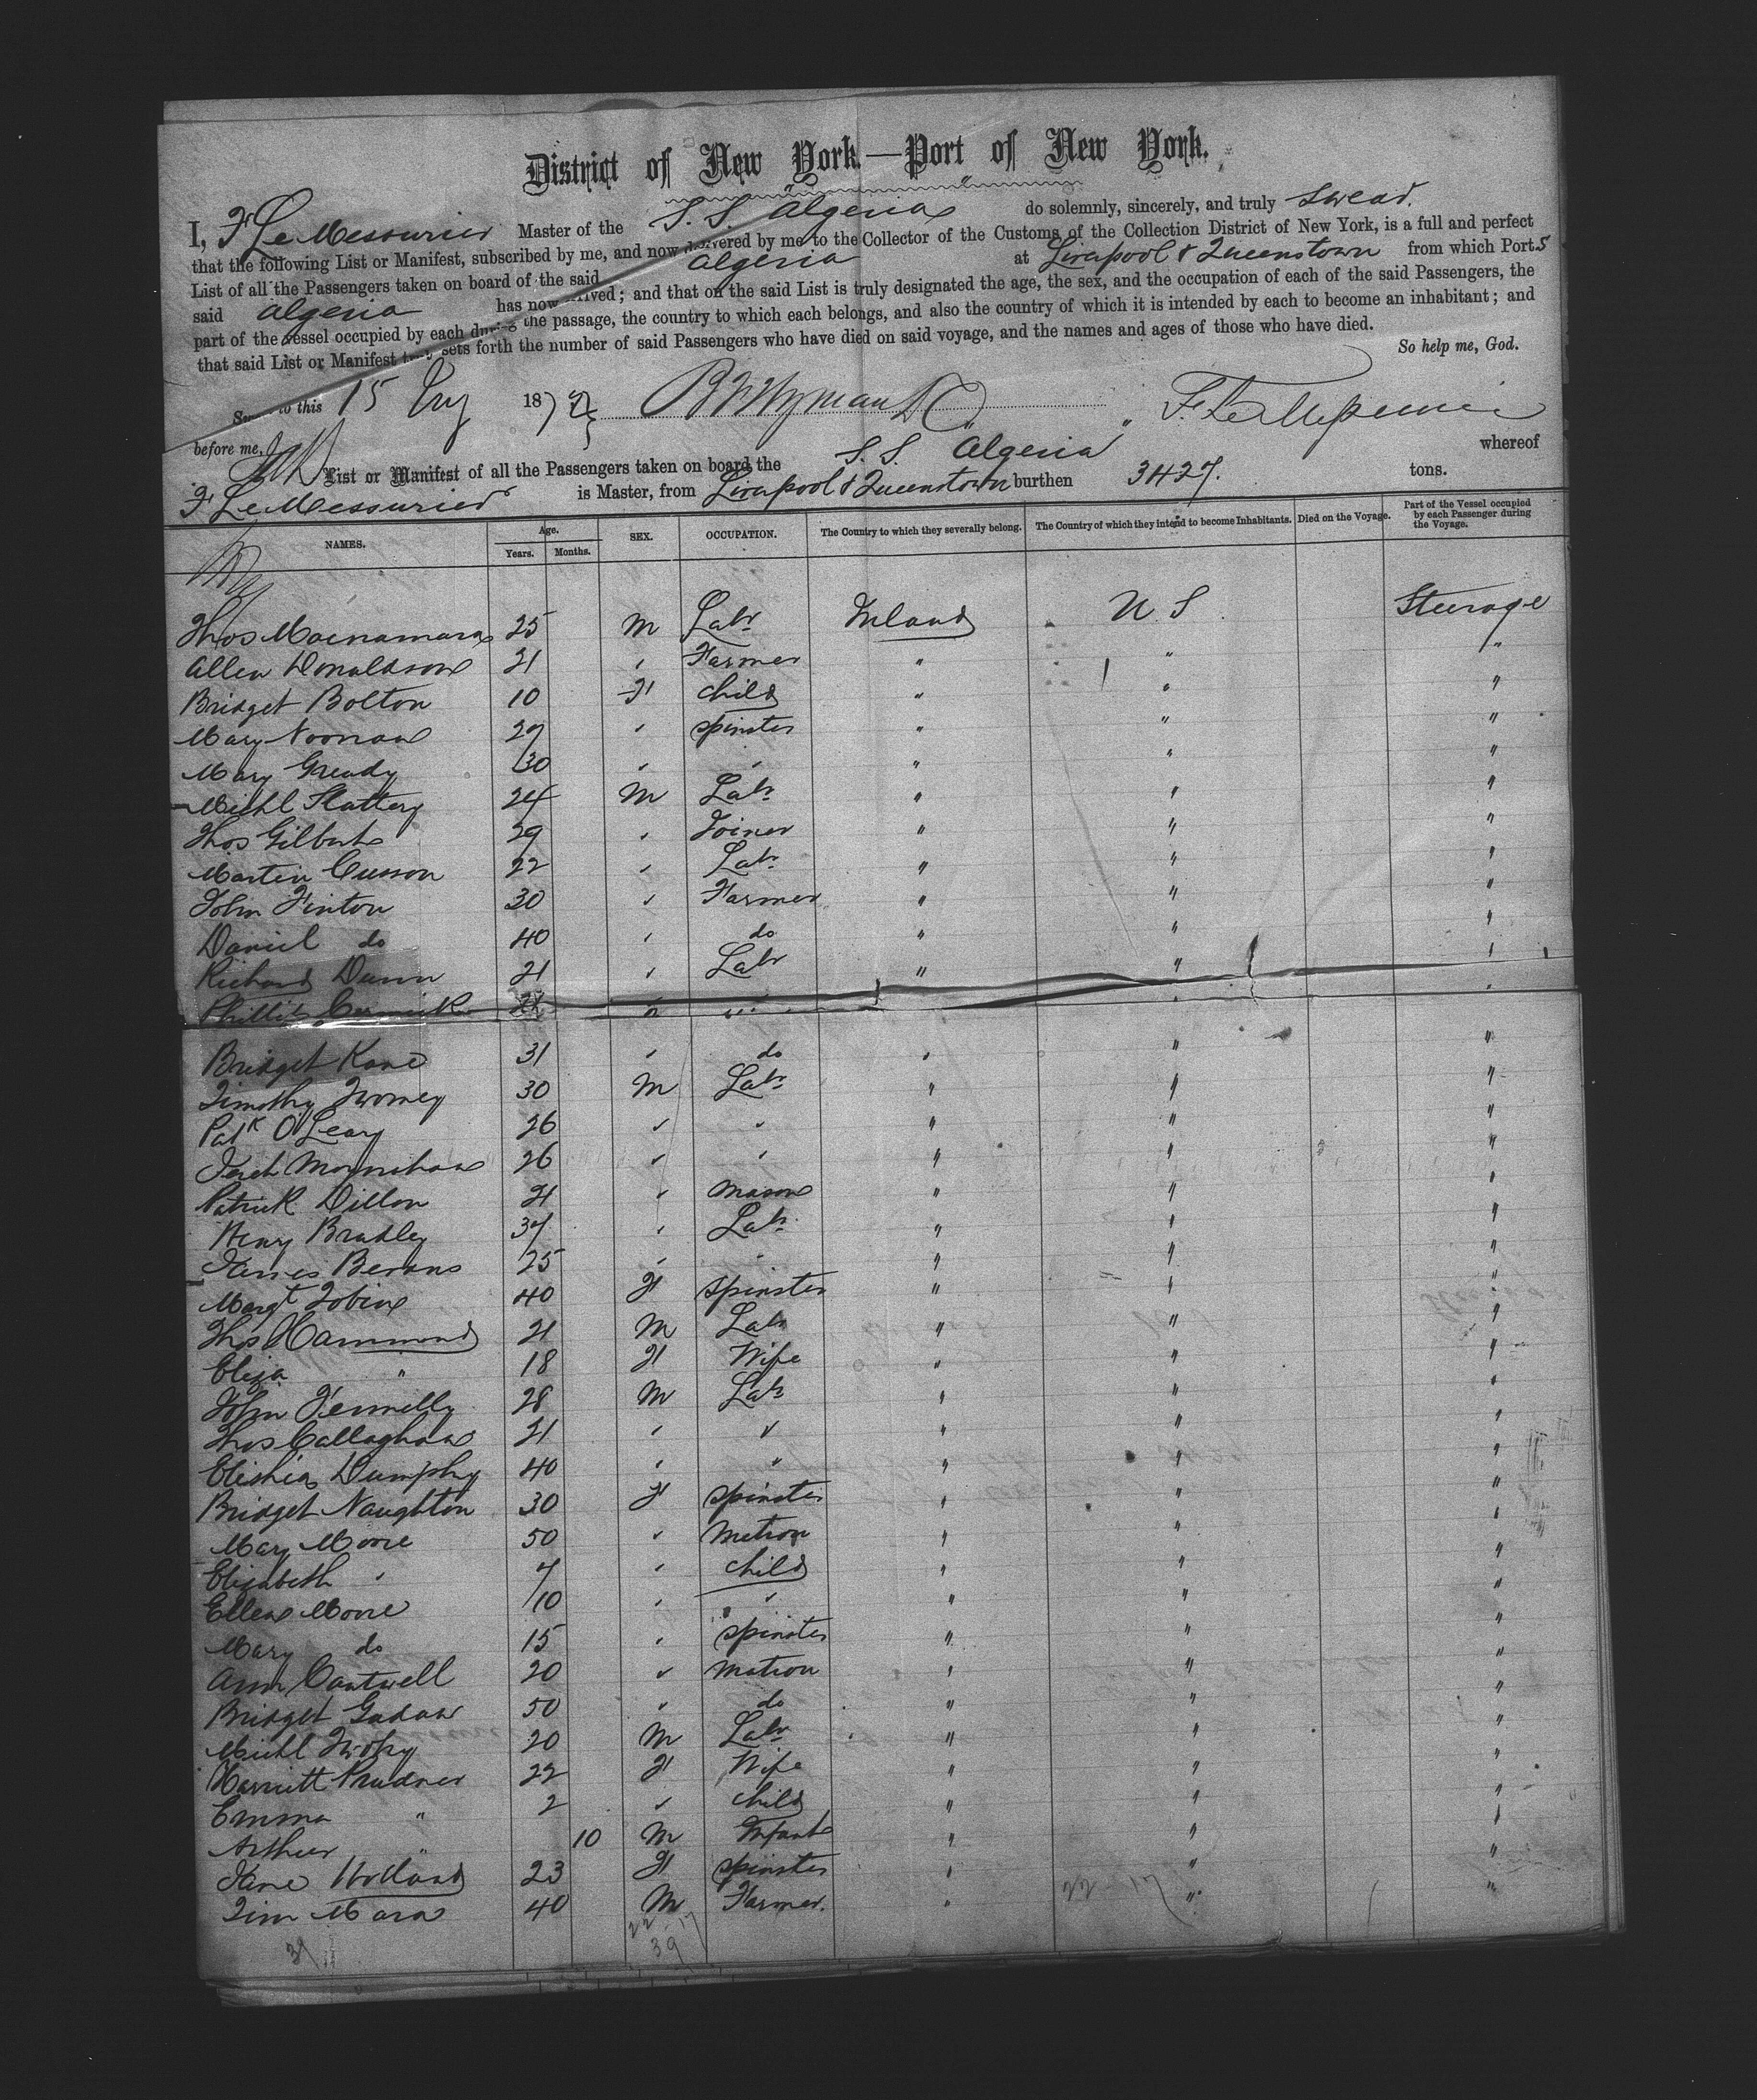 District of New York.—Port of New York.
I, F Le Messurier Master of the S. S. "Algeria" do solemnly, sincerely, and truly swear.
that the following List or Manifest, subscribed by me, and now delivered by me to the Collector of the Customs of the Collection District of New York, is a full and perfect
List of all the Passengers taken on board of the said Algeria at Liverpool & Queenstown from which Ports
said Algeria has now arrived; and that on the said List is truly designated the age, the sex, and the occupation of each of the said Passengers, the
part of the vessel occupied by each during the passage, the country to which each belongs, and also the country of which it is intended by each to become an inhabitant; and
that said List or Manifest truly sets forth the number of said Passengers who have died on said voyage, and the names and ages of those who have died.
So help me, God.
to this 15 187
before me,
List or Manifest of all the Passengers taken on board the S. S. "Algeria" whereof
F Le Messurier is Master, from Liverpool & Queenstown burthen 3427. tons.
NAMES. Age. Years. Months. SEX. OCCUPATION. The Country to which they severally belong. The Country of which they intend to become Inhabitants. Died on the Voyage. Part of the Vessel occupied by each Passenger during the Voyage.
Thos Macnamara 25 M Labr Ireland U S Steerage
Allen Donaldson 21 " Farmer " " "
Bridget Bolton 10 F child " " "
Mary Noonan 27 " spinster " " "
Mary Gready 30 " " " " "
Michl Slattery 24 M Labr " " "
Thos Gilbert 29 " Joiner " " "
Martin Cusson 22 " Labr " " "
John Finton 30 " Farmer " " "
Daniel do 40 " do " " "
Richard Dunn 21 " Labr " " "
Phillip " " " "
Bridget Kane 31 " do " " "
Timothy Twomey 30 M Labr " " "
Patk O'Leary 26 " " " " "
Jereh Moynihan 26 " " " " "
Patrick Dillon 21 " Mason " " "
Henry Bradley 37 " Labr " " "
James Berans 25 " " " " "
Margt Tobin 40 F spinster " " "
Thos Hammond 21 M Labr " " "
Eliza " 18 F Wife " " "
John Fennelly 28 M Labr " " "
Thos Callaghan 21 " " " " "
Elishia Dumphy 40 " " " " "
Bridget Naughton 30 F spinster " " "
Mary Moore 50 " Matron " " "
Elizabeth " 7 " child " " "
Ellen Moore 10 " " " " "
Mary do 15 " spinster " " "
Ann Cantwell 20 " matron " " "
Bridget 50 " do " " "
Michl 20 M Labr " " "
Harriett Prudner 22 F Wife " " "
Emma " 2 " child " " "
Arthur " 10 M Infant " " "
Jane Holland 23 F spinster " " "
Tim Mara 40 M Farmer. " " "
22 17
39
22 - 17